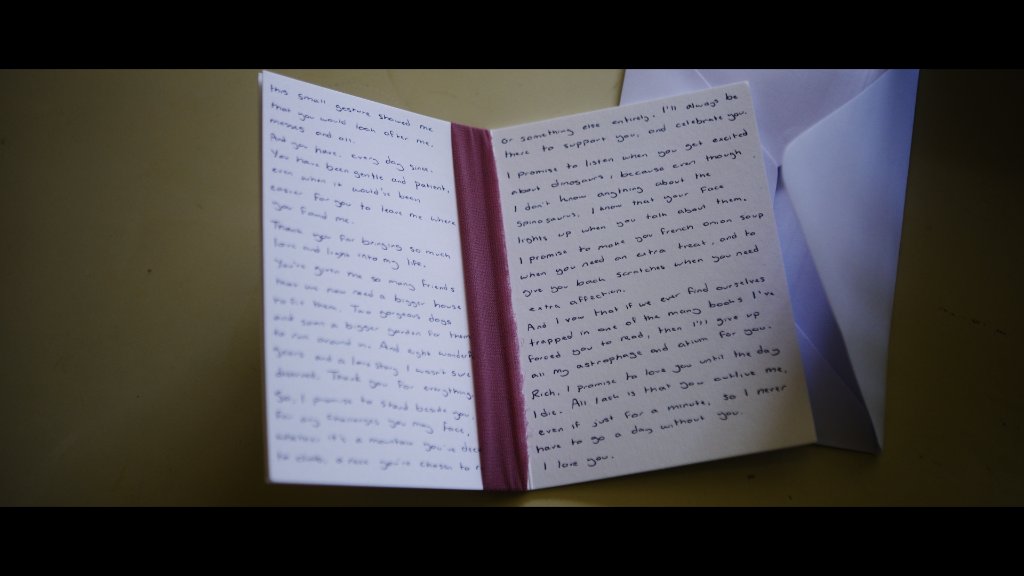 this small gesture showed me
that you would look after me,
messes and all.
And you have, every day since.
You have been gentle and patient,
even when it would've been
easier for you to leave me where
you found me.
Thank you for bringing so much
love and light into my life.
You've given me so many friends
that we now need a bigger house
to fit them. Two gorgeous dogs
and soon a bigger garden for them
to run around in. And eight wonderful
years and a love story I wasn't sure
deserved. Thank you for everything.
So, I promise to stand beside you,
for any challenges you may face,
whether it's a mountain you've
to climb, a race you've chosen to
or something else entirely. I'll always be
there to support you, and celebrate you.
I promise to listen when you get excited
about dinosaurs, because even though
I don't know anything about the
spinosaurus, I know that your face
lights up when you talk about them.
I promise to make you French onion soup
when you need an extra treat, and to
give you back scratches when you need
extra affection.
And I vow that if we ever find ourselves
trapped in one of the many books I've
forced you to read, then I'll give up
all my astrophage and atium for you.
Rich, I promise to love you until the day
I die. All I ask is that you outlive me,
even if just for a minute, so I never
have to go a day without you.
I love you.